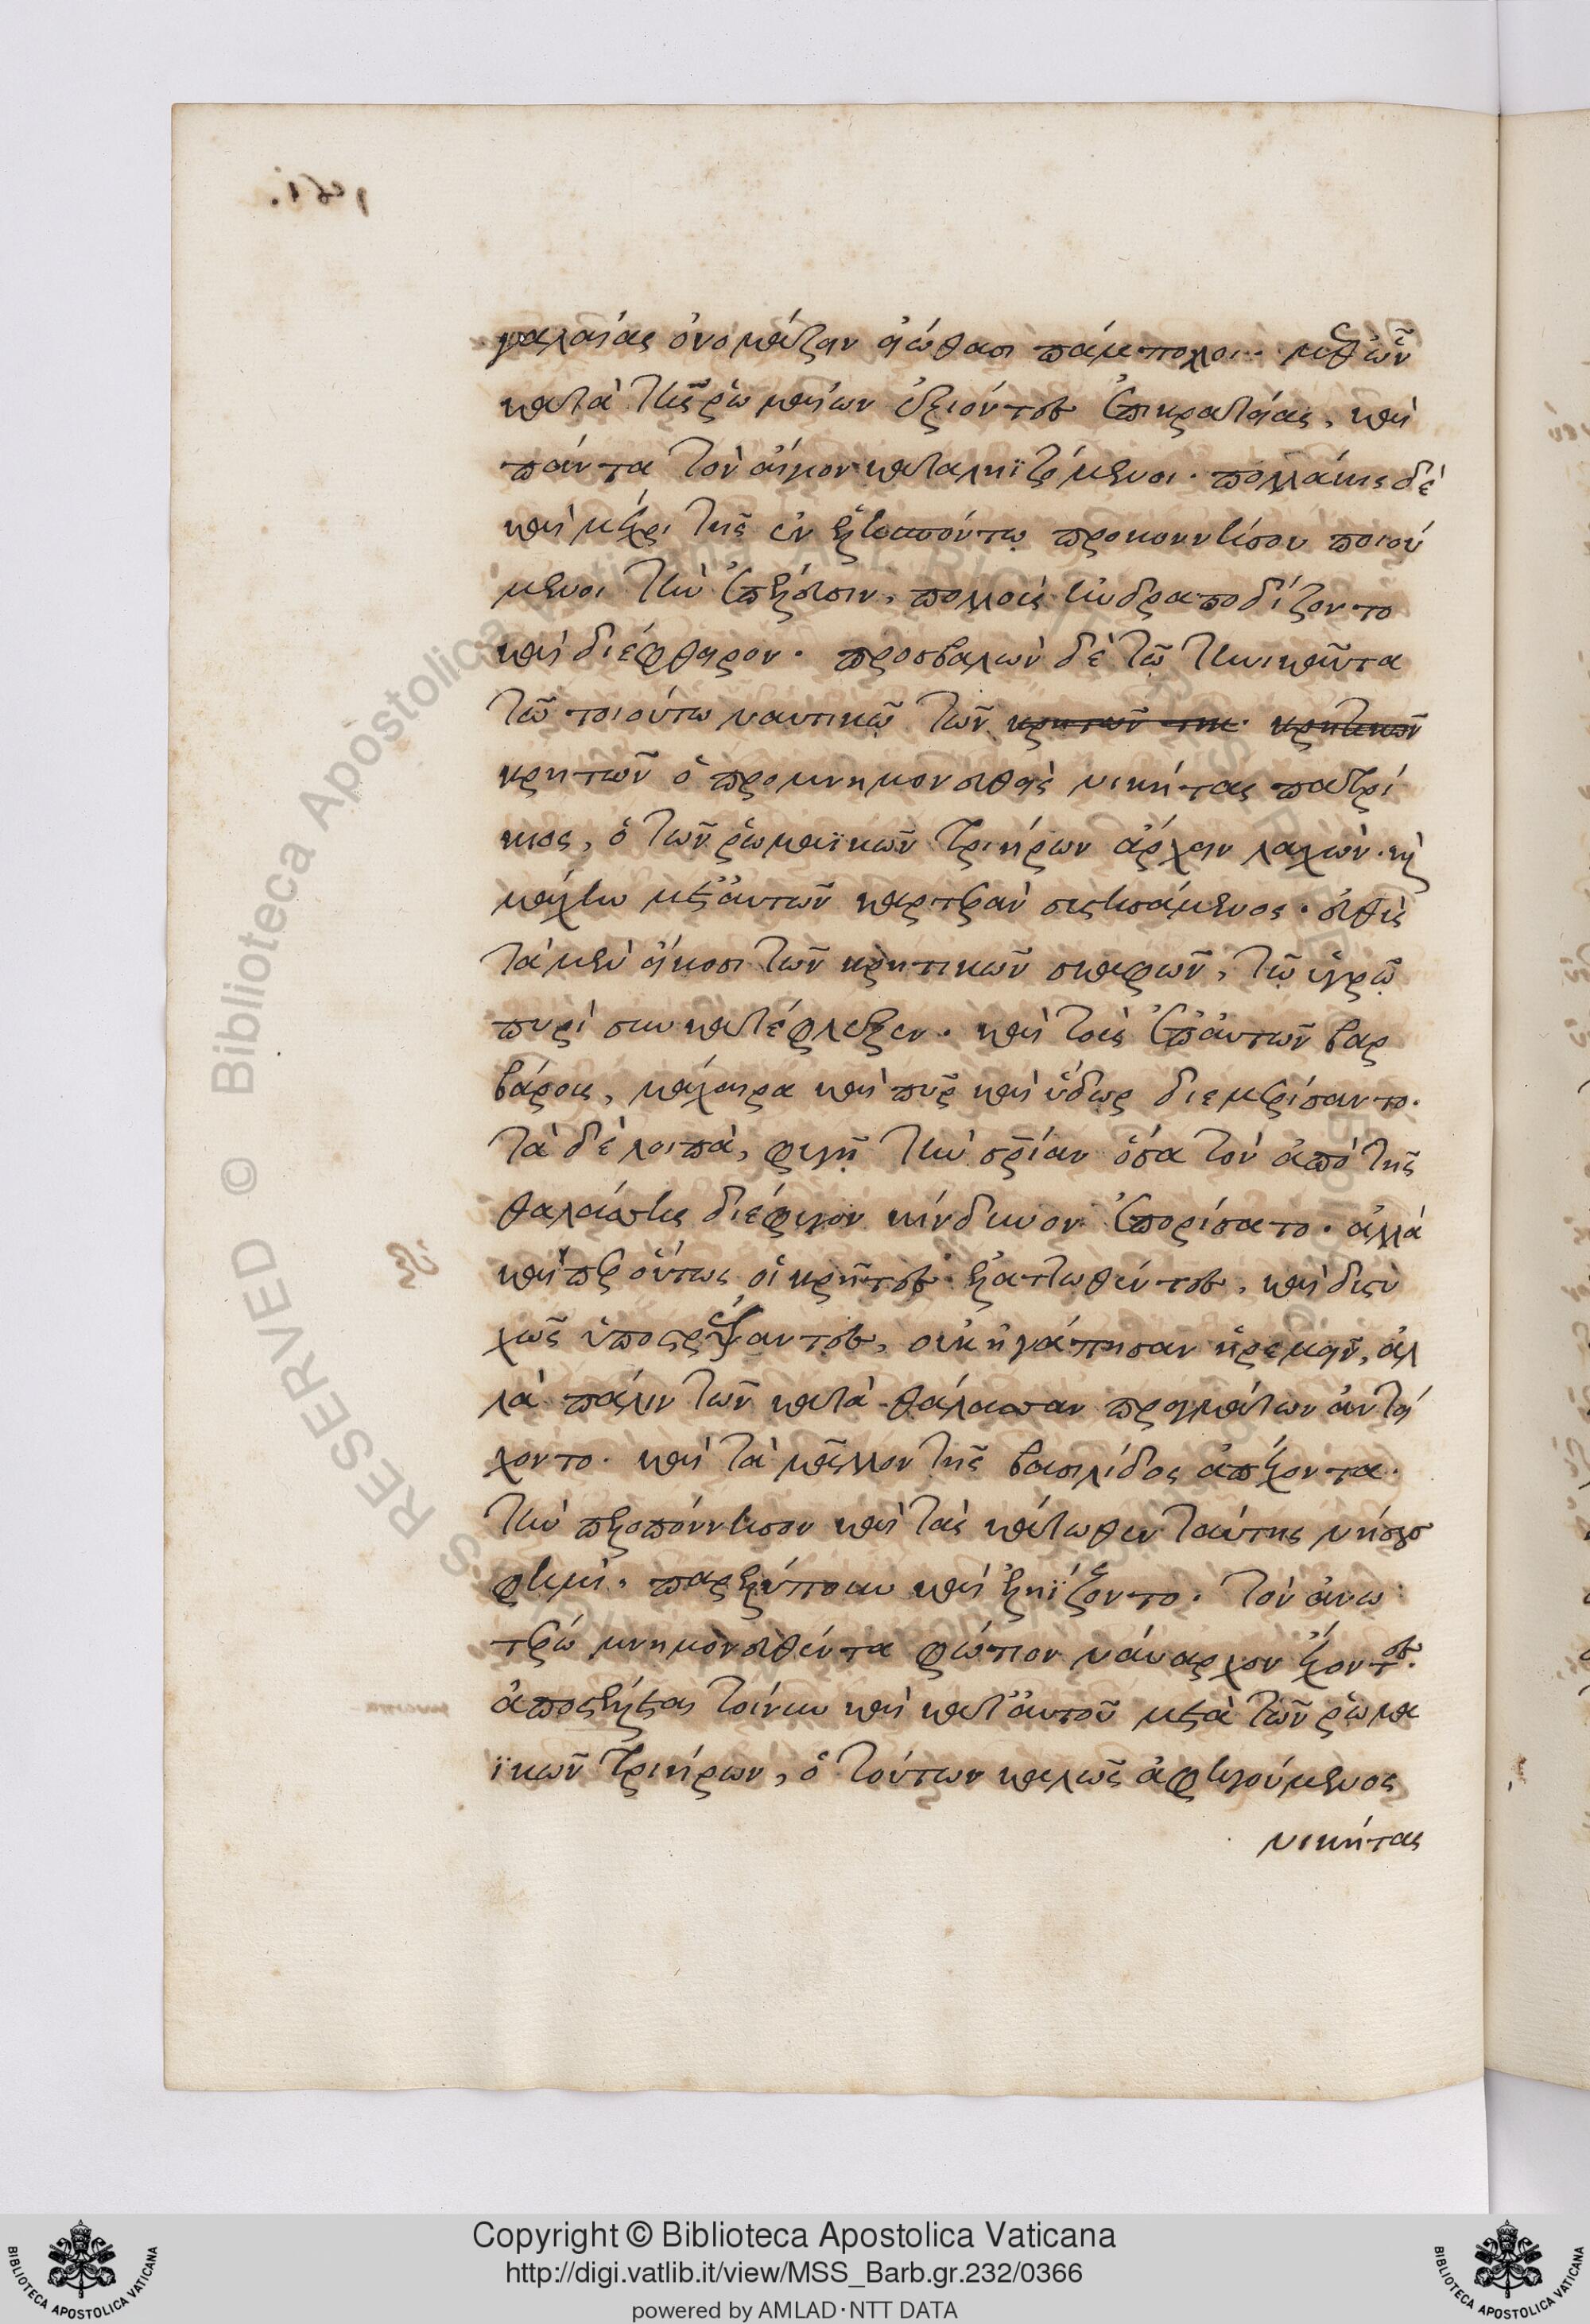 γαλαίας ὀνομάζειν εἰώθασι πάμπολλοι. μεθ' ὧν
κατὰ τῆς ῥωμαίων ἐξιόντες ἐπικρατείας, καὶ
πάντα τὸν αἰγιον καταληϊζόμενοι. πολλάκις δὲ
καὶ μέχρι τῆς ἐν ἑλλησπόντῳ προκοννήσου ποιού
μενοι τὴν ἐπέλευσιν, πολλοὺς ἠνδραποδίζοντο
καὶ διέφθειρον. προσβαλὼν δὲ τῷ τηνικαῦτα
τῶ τοιούτω ναυτικῷ τῶν
κρητῶν ὁ προμνημονευθεὶς νικήτας πατρί
κιος, ὁ τῶν ῥωμαϊκῶν τριήρων ἄρχειν λαχών. καὶ
μάχην μετ' αὐτῶν καρτερὰν συστησάμενος. εὐθὺς
τὰ μὲν εἴκοσι τῶν κρητικῶν σκαφῶν, τῷ ὑγρῷ
πυρὶ συγκατέφλεξεν. καὶ τοὺς ἐπ' αὐτῶν βαρ
βάρους, μάχαιρα καὶ πῦρ καὶ ὕδωρ διεμερίσαντο.
τὰ δὲ λοιπὰ, φυγῇ τὴν σωτηρίαν ὅσα τὸν ἀπὸ τῆς
θαλάσσης διέφυγον κίνδυνον ἐπορίσατο. ἀλλὰ
καίπερ οὕτως οἱ κρῆτες ἐλαττωθέντες, καὶ δυστυ
χῶς ὑποστρέψαντες, οὐκ ἠγάπησαν ἠρεμεῖν, ἀλ
λὰ πάλιν τῶν κατὰ θάλασσαν πραγμάτων ἀντεί
χοντο. καὶ τὰ μᾶλλον τῆς βασιλίδος ἀπέχοντα.
τὴν πελοπόννησον καὶ τὰς κάτωθεν ταύτης νήσους
φημὶ. παρελύπουν καὶ ἐληΐζοντο. τὸν ἀνω
τέρω μνημονευθέντα φώτιον ναύαρχον ἔχοντες.
ἀποστέλλεται τοίνυν καὶ κατ' αὐτοῦ μετὰ τῶν ῥωμα
ϊκῶν τριήρων, ὁ τούτων καλῶς ἀφηγούμενος
νικήτας
Copyright © Biblioteca Apostolica Vaticana
http://digi.vatlib.it/view/MSS_Barb.gr.232/0366
powered by AMLAD·NTT DATA